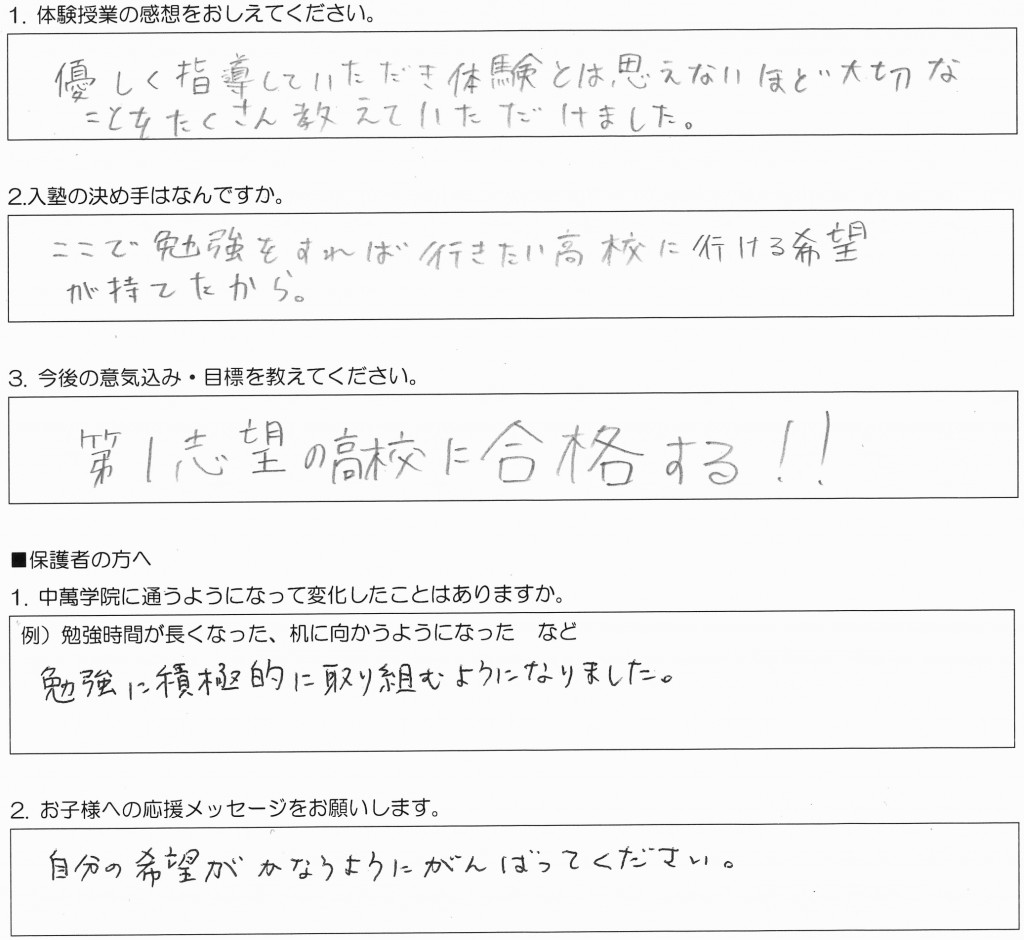 1. 体験授業の感想をおしえてください。
優しく指導していただき体験とは、思えないほど大切な
ことをたくさん教えていただけました。
2.入塾の決め手はなんですか。
ここで勉強をすれば行きたい高校に行ける希望
が持てたから。
3. 今後の意気込み・目標を教えてください。
第1志望の高校に合格する!!
■保護者の方へ
1. 中萬学院に通うようになって変化したことはありますか。
例）勉強時間が長くなった、机に向かうようになった　など
勉強に積極的に取り組むようになりました。
2. お子様への応援メッセージをお願いします。
自分の希望がかなうようにがんばってください。